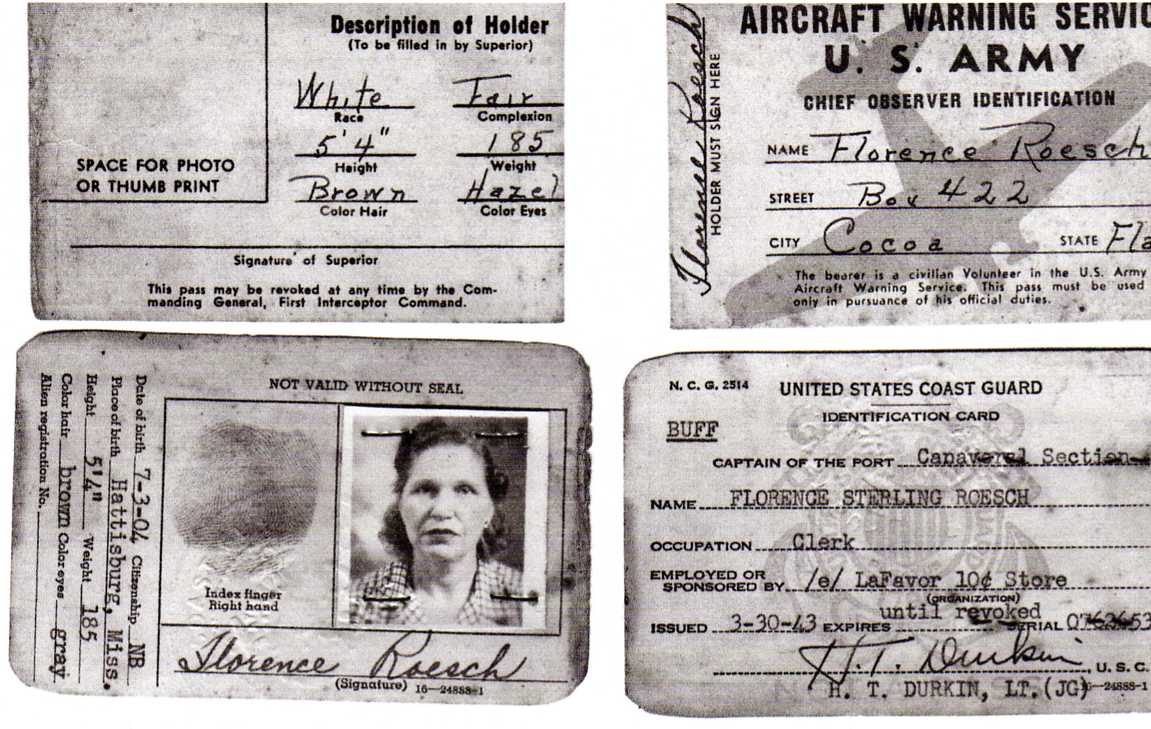 Description of Holder
(To be filled in by Superior)
White Fair
Race Complexion
5'4" 185
Height Weight
Brown Hazel
Color Hair Color Eyes
SPACE FOR PHOTO
OR THUMB PRINT
Signature of Superior
This pass may be revoked at any time by the Com-
manding General, First Interceptor Command.
Florence Roesch
HOLDER MUST SIGN HERE
AIRCRAFT WARNING SERVIC
U. S. ARMY
CHIEF OBSERVER IDENTIFICATION
NAME Florence Roesch
STREET Box 422
CITY Cocoa STATE Fla
The bearer is a civilian Volunteer in the U.S. Army
Aircraft Warning Service. This pass must be used
only in pursuance of his official duties.
Date of birth 7-3-04 Citizenship NB
Place of birth Hattisburg, Miss.
Height 5'4" Weight 185
Color hair brown Color eyes gray
Alien registration No.
NOT VALID WITHOUT SEAL
Index finger
Right hand
Florence Roesch
(Signature) 16—24888-1
N. C. G. 2514 UNITED STATES COAST GUARD
IDENTIFICATION CARD
BUFF
CAPTAIN OF THE PORT Canaveral Section
NAME FLORENCE STERLING ROESCH
OCCUPATION Clerk
EMPLOYED OR
SPONSORED BY /e/ LaFavor 10¢ Store
(ORGANIZATION)
until revoked
ISSUED 3-30-43 EXPIRES SERIAL
H.T. Durkin U. S. C.
H. T. DURKIN, LT.(JG) 6—24888-1